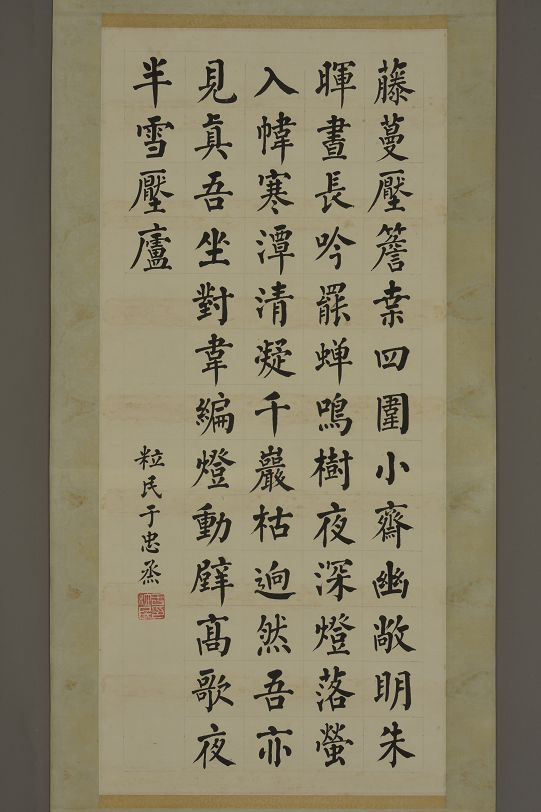 藤蔓壓簷桒四圍小齋幽敞明朱
暉晝長吟罷蟬鳴樹夜深燈落螢
入幃寒潭清凝千巖枯逈然吾亦
見眞吾坐對韋編燈動壁高歌夜
半雪壓廬
粒民于忠烝